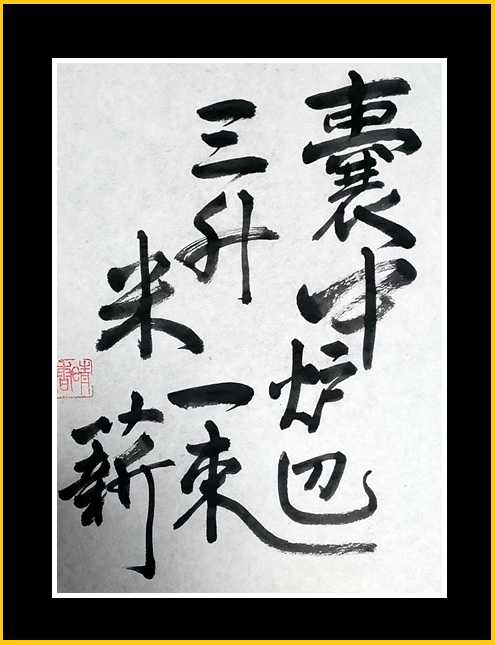 囊中
三升
米
炉辺
一束
薪